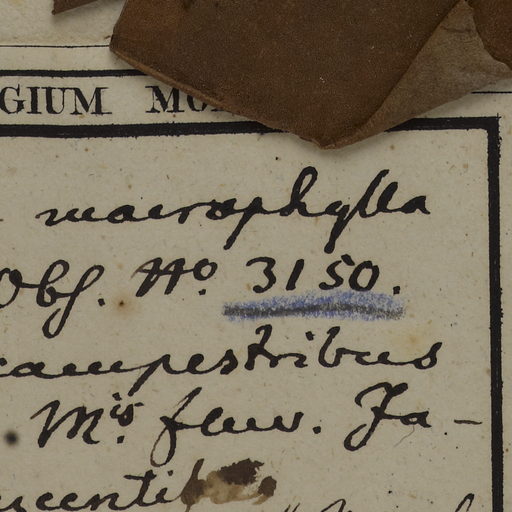 GIUM MO
macrophylla
Obs. No 3150.
campestribus
Mis. fluv. Ja-